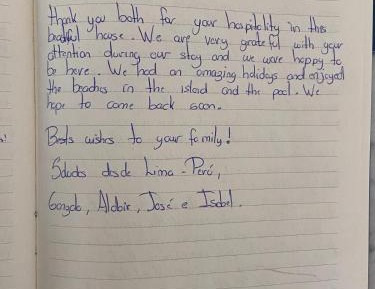 Thank you both for your hospitality in this
beatiful house. We are very grateful with your
attention during our stay and we were happy to
be here. We had an amazing holidays and enjoyed
the beaches in the island and the pool. We
hope to come back soon.
Bests wishes to your family!
Saludos desde Lima - Perú,
Gonzalo, Aldair, José e Isabel.